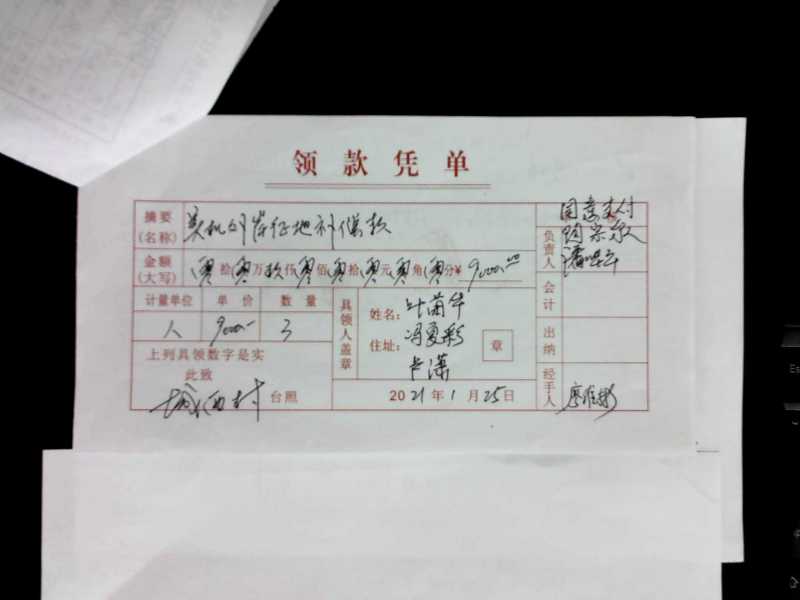 领款凭单
摘要(名称) 征地补偿款
金额(大写) 零拾零万玖仟零佰零拾零元零角零分¥9000.00
计量单位 单价 数量
人 9000- 3
上列具领数字是实
此致
城西村 台照
具领人盖章
姓名: 叶萧华
住址: 冯夏彩
卢潇
章
2021年1月25日
同意支付
负责人
会计
出纳
经手人 廖准彬